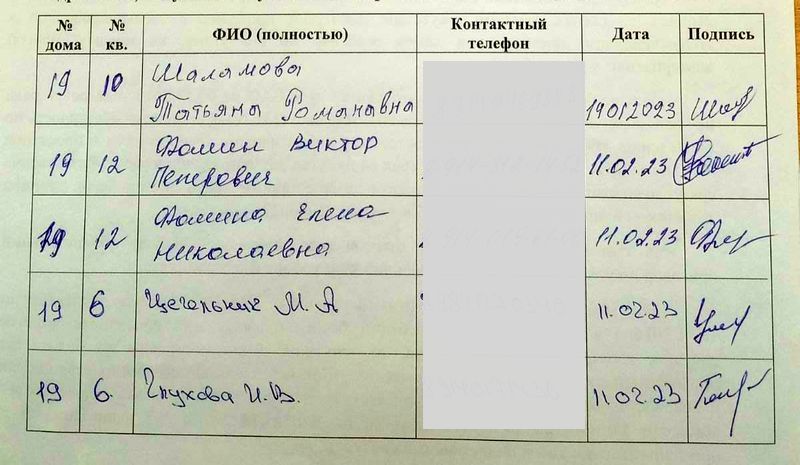 № дома № кв. ФИО (полностью) Контактный телефон Дата Подпись
19 10 Шаламова
Татьяна Романавна 19012023
19 12 Фомин Виктор
Петрович 11.02.23
19 12 Фомина Елена
Николаевна 11.02.23
19 6 Цегельник М.А 11.02.23
19 6. Глухова И.В. 11.02.23